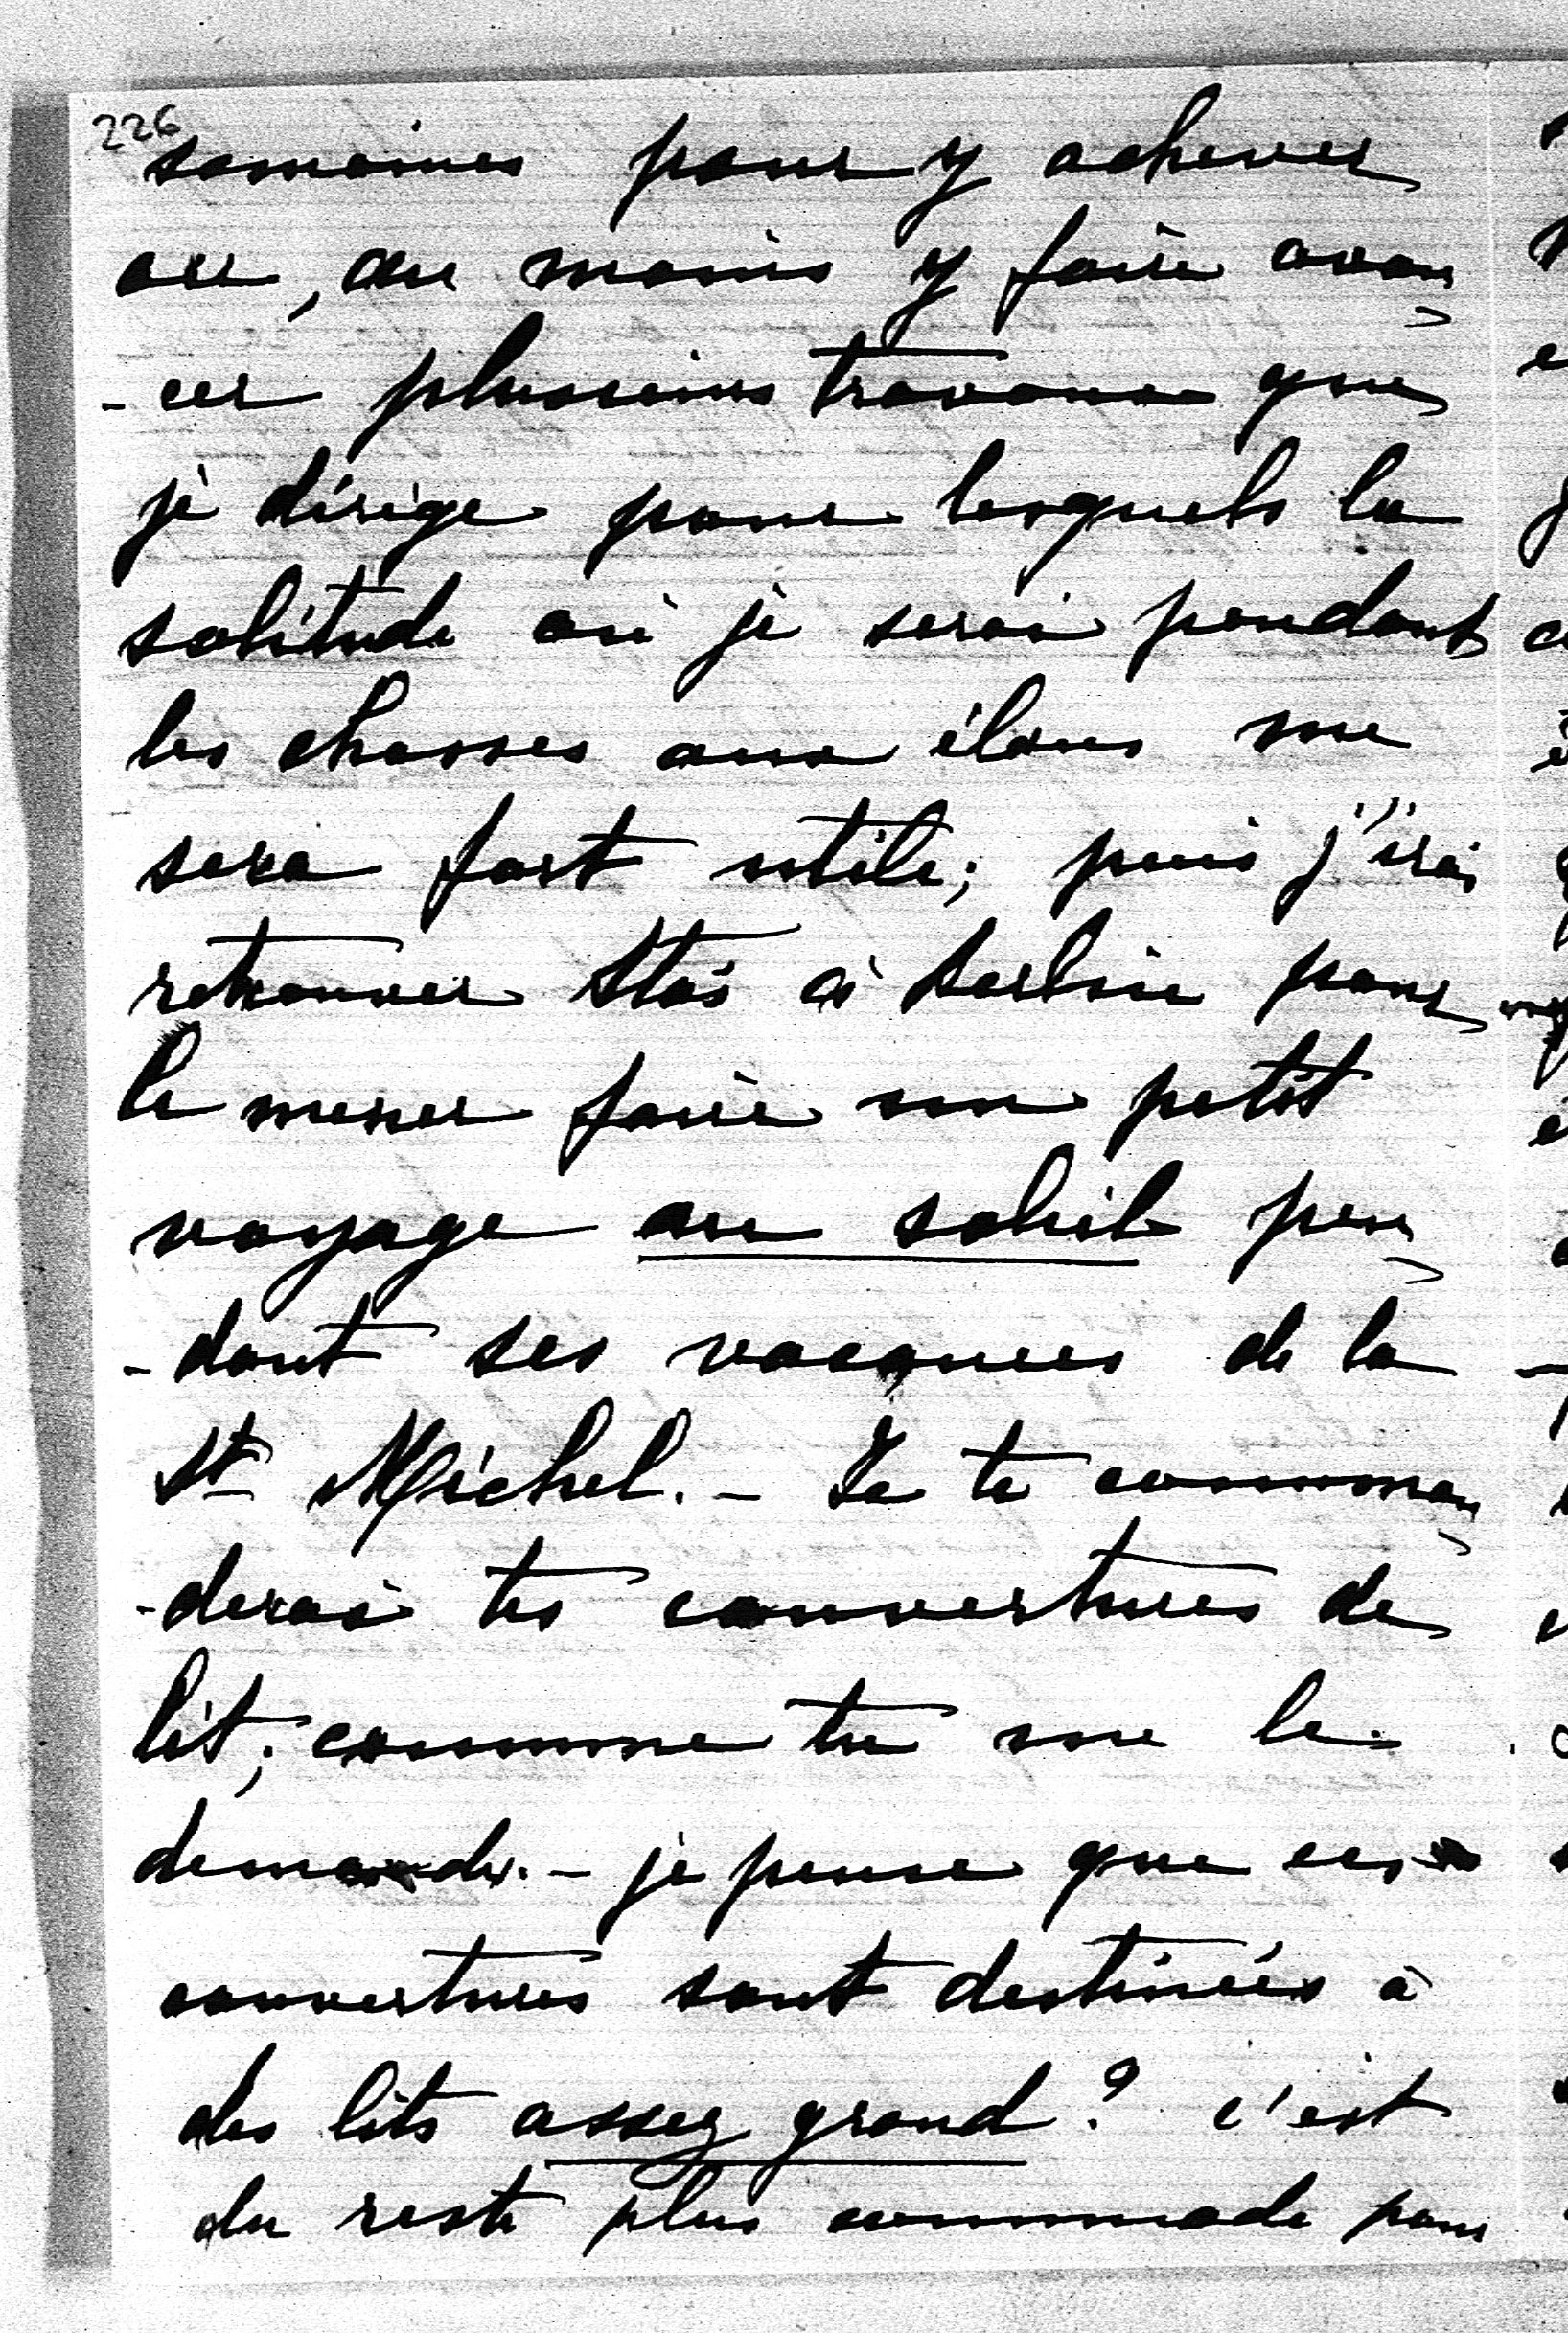 226
semaines pour y achever
ou, au moins y faire avan
-cer plusieurs travaux que
je dirige pour lesquels la
solitude où je serai pendant
les chasses aux élans me
sera fort utile; puis j'irai
retrouver Stas à Berlin pour
le mener faire un petit
voyage au soleil pen
-dant ses vacances de la
St Michel. - Je te comman
-derai tes couvertures de
lit; comme tu me le
demandes. - je pense que ces
couvertures sont destinées à
des lits assez grand? c'est
du reste plus commode pour